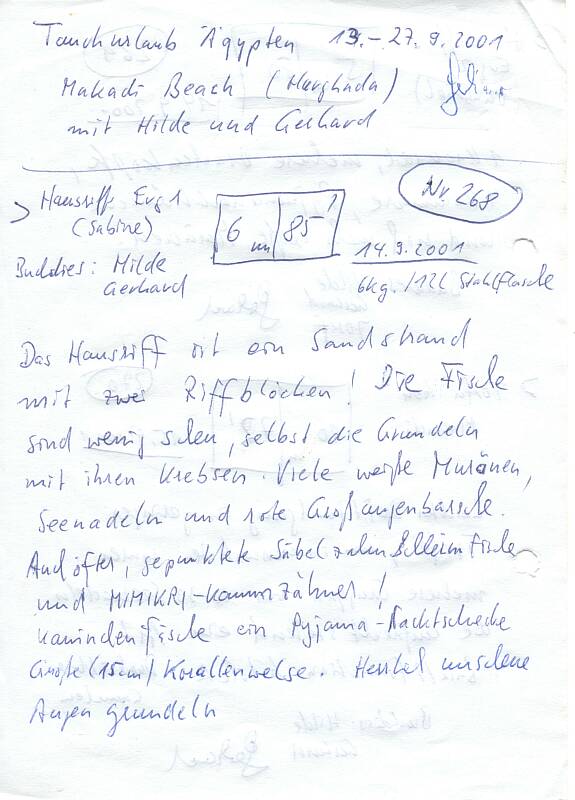 Tauchurlaub Ägypten 13.-27.9.2001
Makadi Beach (Hurghada)
mit Hilde und Gerhard
> Hausriff Erg 1
(Sabine)
6 m 85'
Nr. 268
14.9.2001
6kg. / 12L Stahlflasche
Buddies: Hilde
Gerhard
Das Hausriff ist ein Sandstrand
mit zwei Riffblöcken! Die Fische
sind wenig scheu, selbst die Grundeln
mit ihren Krebsen. Viele weiße Muränen,
Seenadeln und rote Großaugenbarsche.
Auch öfter, gepunktete Säbelzahnschleimfische
und MIMIKRI-Kammzähner!
Kaninchenfische ein Pyjama-Nacktschnecke
Große (15cm) Korallenwelse. Herrliche
Augen grundeln